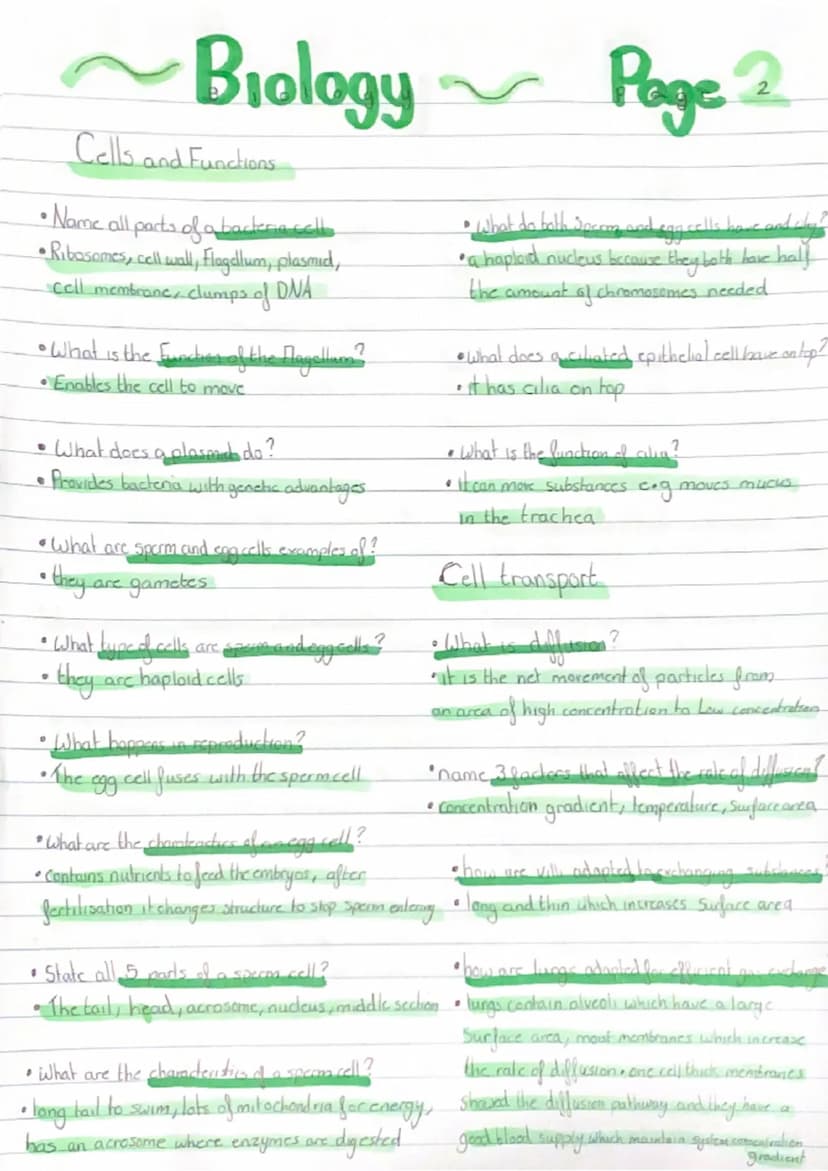 ~ Biology ~ Page 2
Cells and Functions
• Name all parts of a bacteria cell
• Ribosomes, cell wall, Flagellum, plasmid,
cell membrane, clumps of DNA
• What is the function of the flagellum?
• Enables the cell to move
• What does a plasmid do?
• Provides bacteria with genetic advantages
• What are sperm and egg cells examples of?
• they are gametes
• What type of cells are sperm and egg cells?
• they are haploid cells
• What happens in reproduction?
• The egg cell fuses with the sperm cell
• What are the charateristics of an egg cell?
• Contains nutrients to feed the embryos, after
fertilisation it changes structure to stop sperm entering
• State all 5 parts of a sperm cell?
• The tail, head, acrosome, nucleus, middle section
• What are the characteristics of a sperm cell?
• long tail to swim, lots of mitochondria for energy,
has an acrosome where enzymes are digested
• What do both sperm and egg cells have and why?
• a haploid nucleus because they both have half
the amount of chromosomes needed
• What does a ciliated epithelial cell have on top?
• it has cilia on top
• What is the function of cilia?
• it can move substances e.g moves mucus
in the trachea
Cell transport
• What is diffusion?
• it is the net movement of particles from
an area of high concentration to low concentration
• name 3 factors that affect the rate of diffusion?
• concentration gradient, temperature, surface area
• how are villi adapted to exchanging substances?
• long and thin which increases surface area
• how are lungs adapted for efficient gas exchange
• lungs contain alveoli which have a large
surface area, moist membranes which increase
the rate of diffusion. one cell thick membranes
the diffusion pathway and they have a
good blood supply which maintain system concentration
gradient